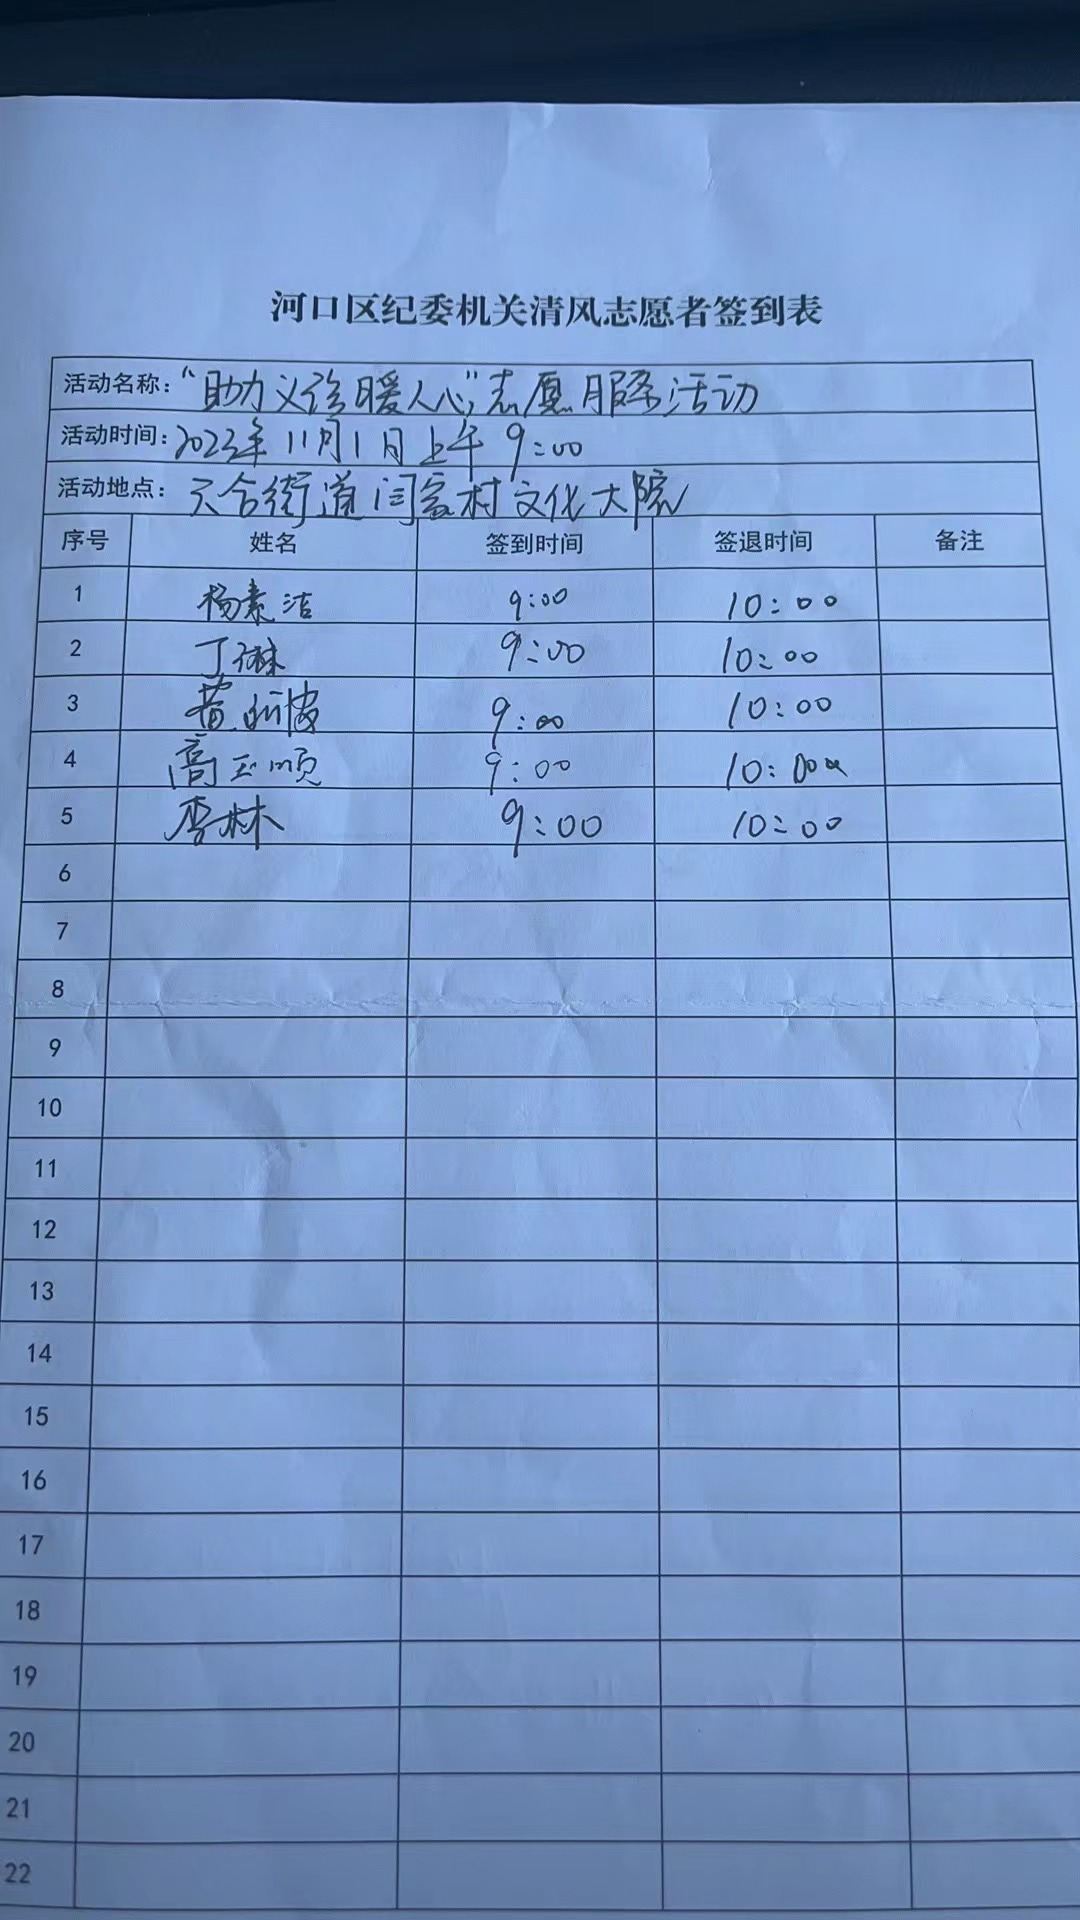 河口区纪委机关清风志愿者签到表
活动名称："助力义诊暖人心"志愿服务活动
活动时间：2023年11月1日上午9:00
活动地点：六合街道闫家村文化大院
序号 姓名 签到时间 签退时间 备注
1 杨素洁 9:00 10:00
2 丁琳 9:00 10:00
3 9:00 10:00
4 高玉顺 9:00 10:00
5 李林 9:00 10:00
6
7
8
9
10
11
12
13
14
15
16
17
18
19
20
21
22